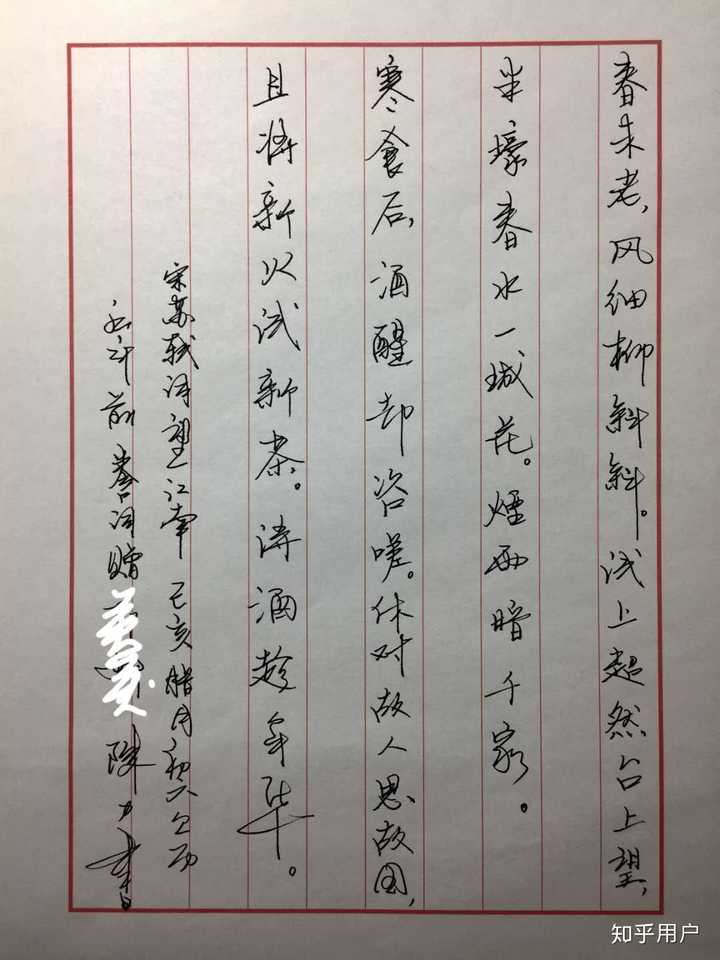 春未老，风细柳斜斜。试上超然台上望，
半壕春水一城花。烟雨暗千家。
寒食后，酒醒却咨嗟。休对故人思故国，
且将新火试新茶。诗酒趁年华。
宋苏轼词望江南 己亥腊月初六
前誊词赠 陈力书
知乎用户